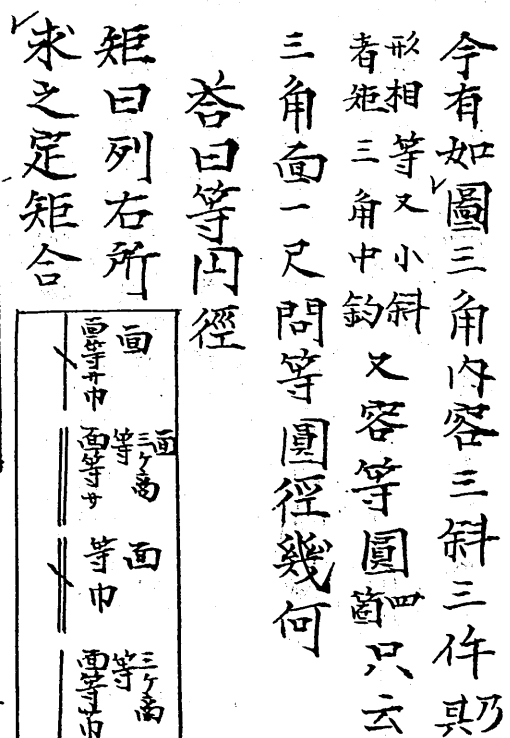 今有如圖三角内容三斜三件乃其
形相等又小斜者矩三角中鈎又容等圓四箇只云
三角面一尺問等圓径幾何
荅曰等円徑
矩曰列右所
求之定矩合
面
面等巾
面
三ケ商
等
面等
面
等巾
三ケ商
等
面等